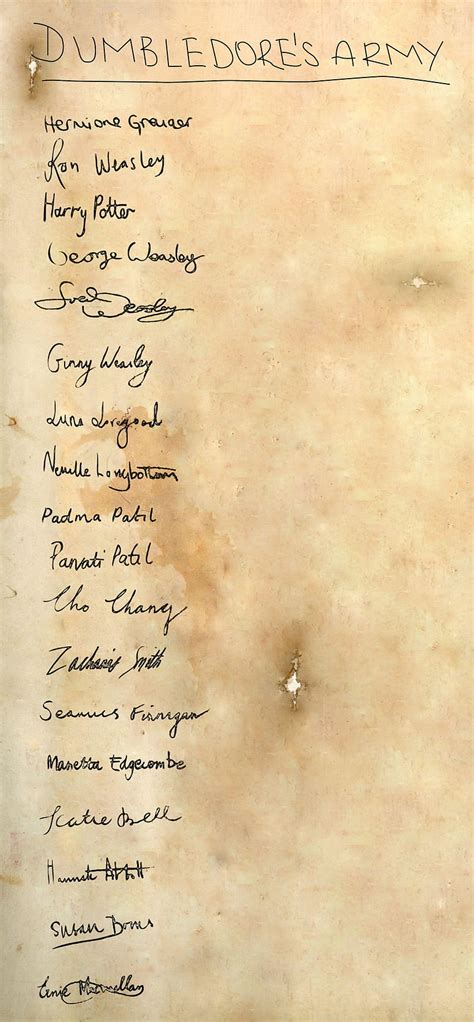 DUMBLEDORE'S ARMY
Hermione Granger
Ron Weasley
Harry Potter
George Weasley
Fred Weasley
Ginny Weasley
Luna Lovegood
Neville Longbottom
Padma Patil
Parvati Patil
Cho Chang
Zacharias Smith
Seamus Finnegan
Marietta Edgecombe
Katie Bell
Hannah Abbott
Susan Bones
Ernie Macmillan